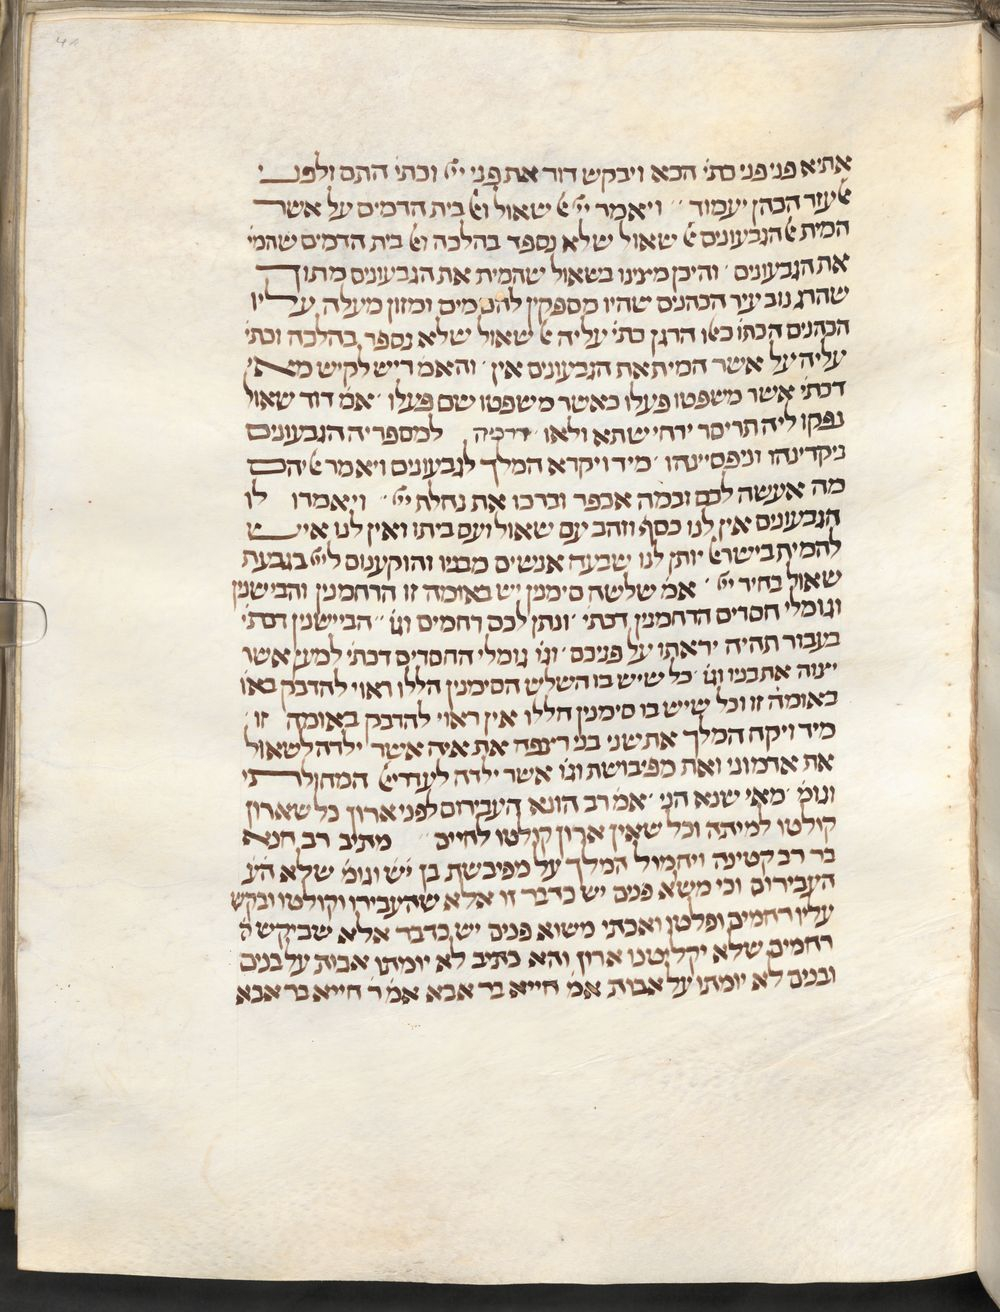 אתיא פני פני כתי הכא ויבקש דוד את פני יי וכתי התם ולפני
אלעזר הכהן יעמוד ויאמר יי אל שאול ואל בית הדמים על אשר
המית אל הגבעונים אל שאול שלא נספד בהלכה ואל בית הדמים שהמי
את הגבעונים והיכן מצינו בשאול שהמית את הגבעונים מתוך
שהרג נוב עיר הכהנים שהיו מספקין להם מים ומזון מעלה עליו
הכתו כאלו הרגן כתי עליה אל שאול שלא נספד בהלכה וכתי
עליה על אשר המית את הגבעונים אין והאמ ריש לקיש מאי
דכתי אשר משפטו פעלו באשר משפטו שם פעלו אמ דוד שאול
נפקו ליה תריסר ירחי שתא ולאו דרכיה למספדיה הגבעונים
ניקרינהו וניפסיינהו מיד ויקרא המלך לגבעונים ויאמר אליהם
מה אעשה לכם ובמה אכפר וברכו את נחלת יי ויאמרו לו
הגבעונים אין לנו כסף וזהב עם שאול ועם ביתו ואין לנו איש
להמית בישראל יותן לנו שבעה אנשים מבניו והוקענום ליי בגבעת
שאול בחיר יי אמ שלשה סימנין יש באומה זו הרחמנין והביישנין
וגומלי חסדים הרחמנין דכתי ונתן לכם רחמים וגו הביישנין דכתי
בעבור תהיה יראתו על פניכם וגו גומלי החסדים דכתי למען אשר
יצוה את בניו וגו כל שיש בו השלש הסימנין הללו ראוי להדבק באו
באומה זו וכל שיש בו סימנין הללו אין ראוי להדבק באומה זו
מיד ויקח המלך את שני בני רצפה את איה אשר ילדה לשאול
את אדמוני ואת מפיבושת וגו אשר ילדה לעדריאל המחולתי
וגומ מאי שנא הני אמ רב הונא העבירום לפני ארון כל שארון
קולטו למיתה וכל שאין ארון קולטו לחיים מתיב רב חנא
בר רב קטינה ויחמול המלך על מפיבשת בן יש וגומ שלא הע
העבירום וכי משא פנים יש כדבר זו אלא שהעבירן וקולטו ובקש
עליו רחמים ופלטן ואכתי משוא פנים יש כדבר אלא שביקש ה
רחמים שלא יקלטנו ארון והא כתיב לא יומתו אבות על בנים
ובנים לא יומתו על אבות אמ חייא בר אבא אמ ר חייא בר אבא